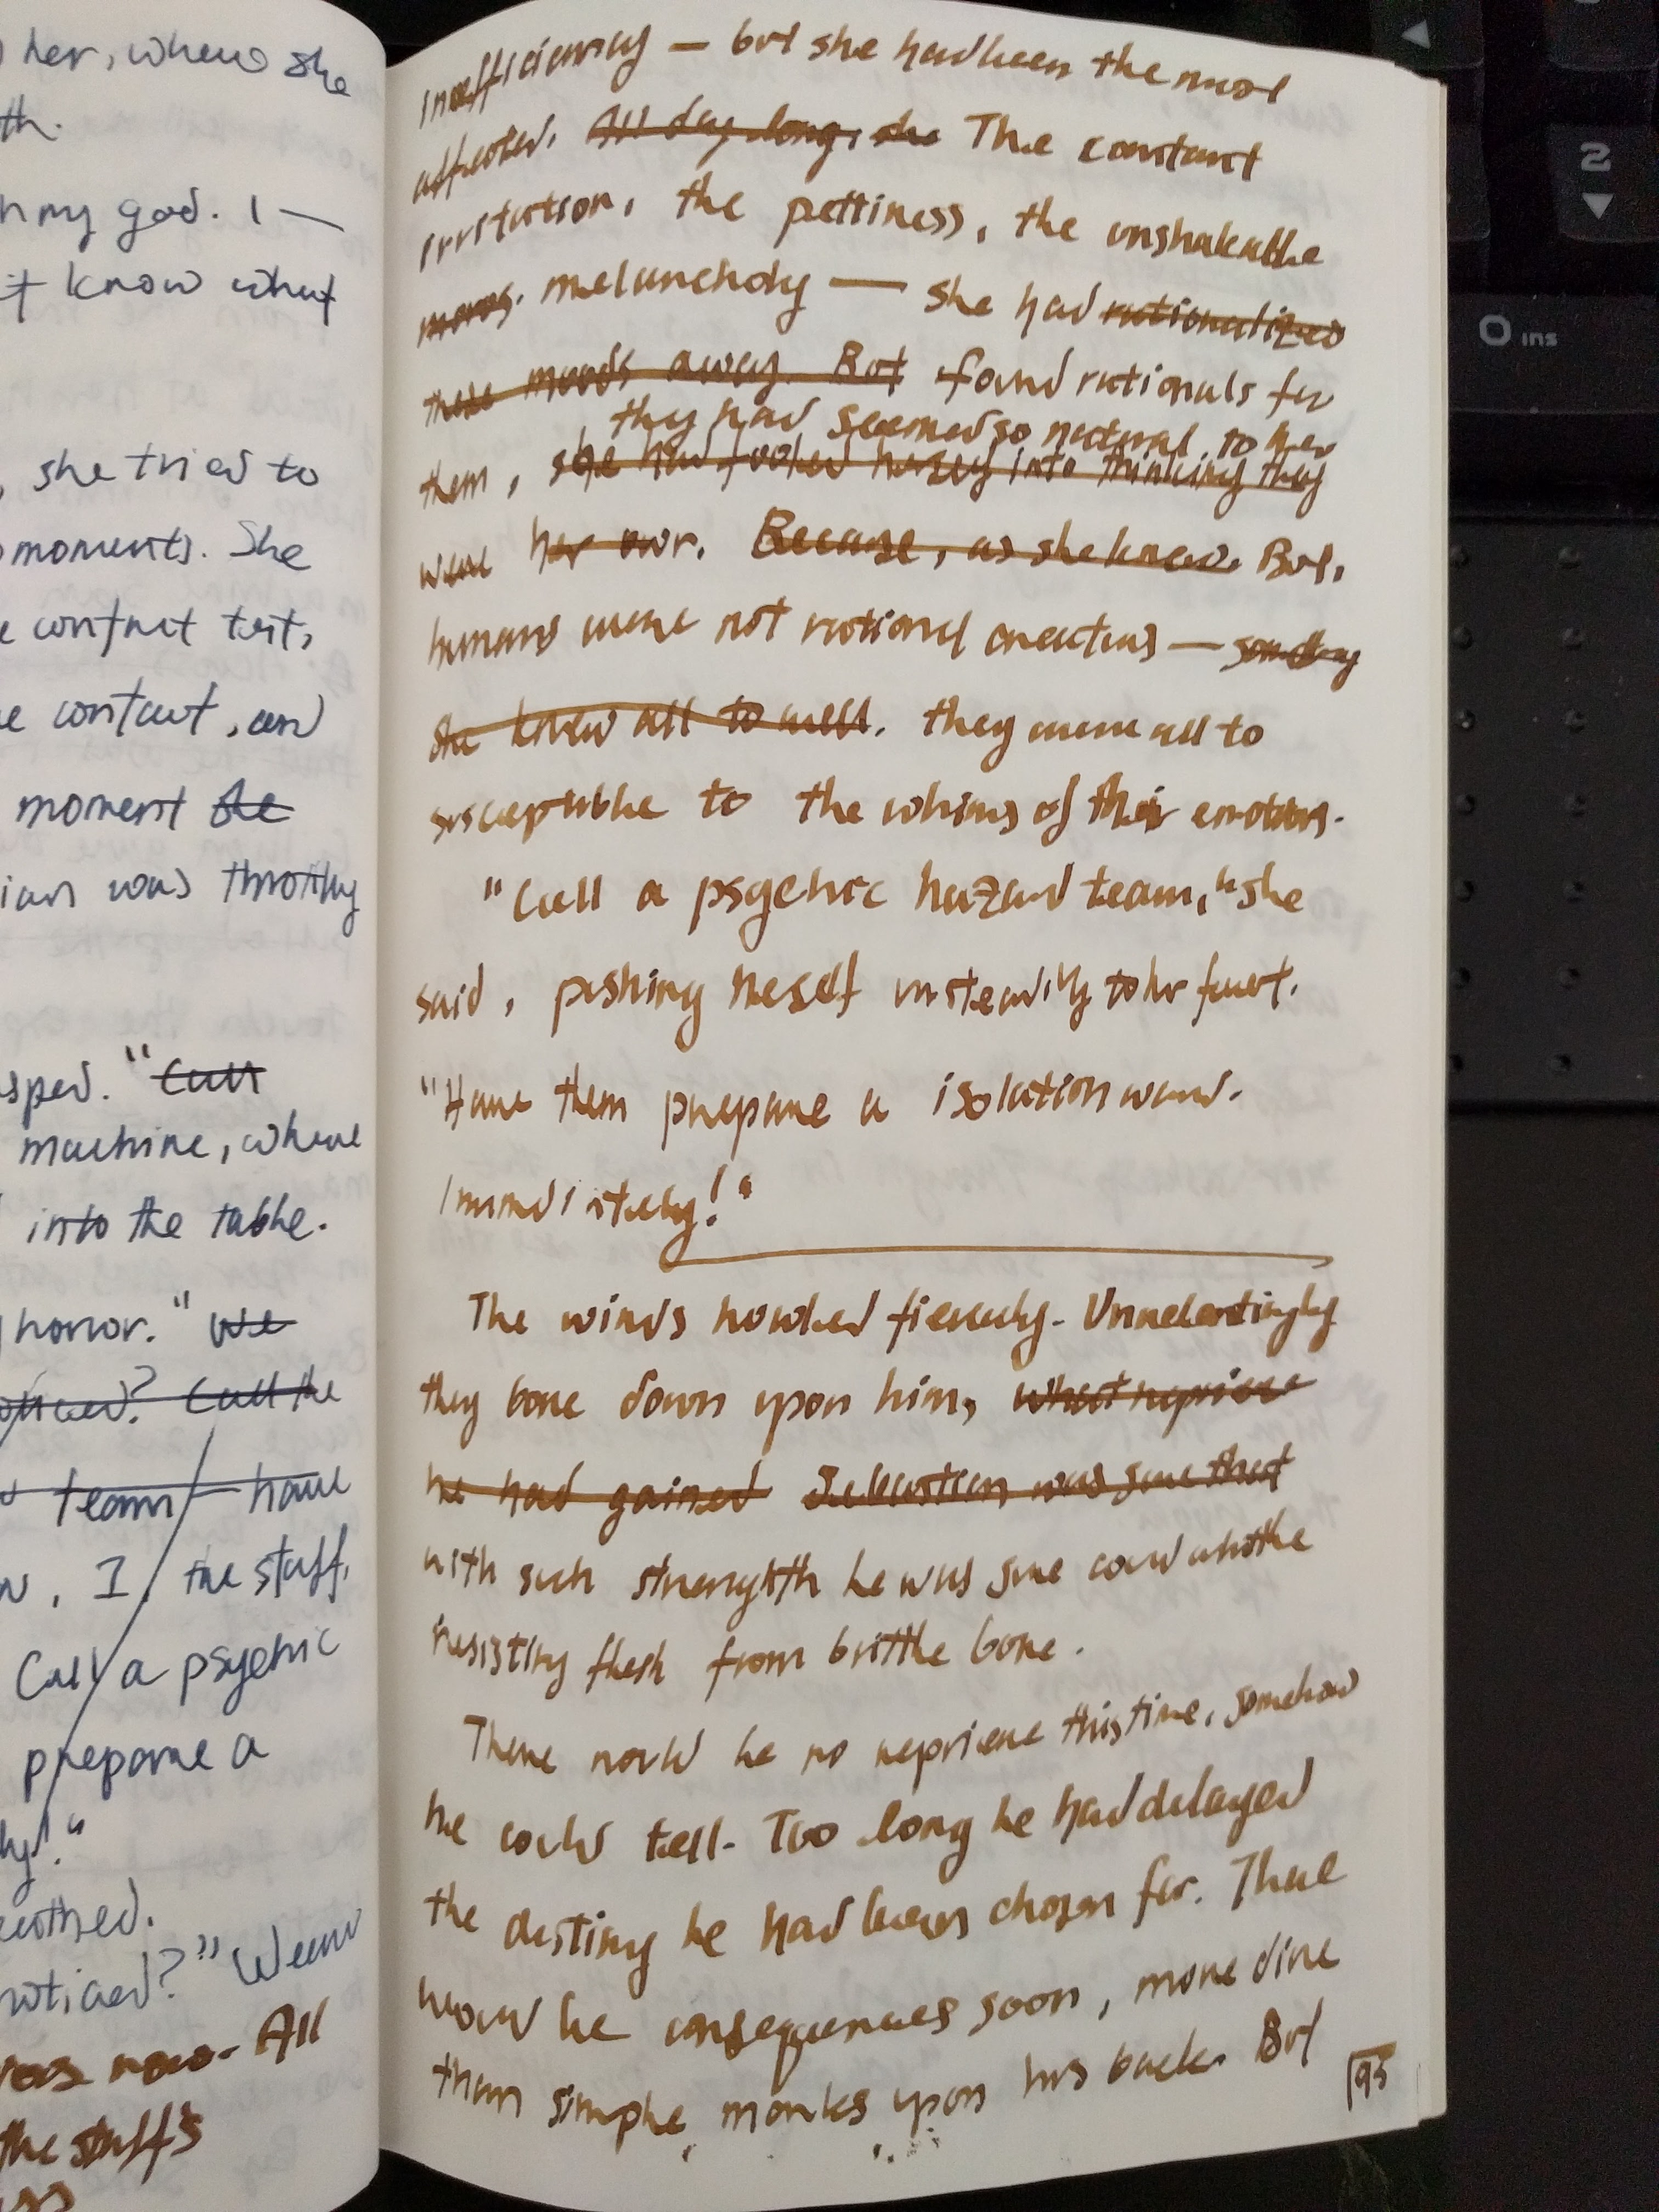 her, where she
th.
h my god. I —
t know what
, she tried to
moments. She
e contact test,
e contact, and
moment she
ian was throttling
sped. "Call
machine, where
into the table.
honor." We
noticed? Call the
team — have
, I / the staff,
Call a psychic
prepare a
ly!"
noticed?" Weem
now. All
the staff's
inefficiency — but she had been the most
affected. All day long, she The constant
irritation, the pettiness, the unshakable
moros. melancholy — she had rationalized
these moods away. But found rationals for
they had seemed so natural to her
them, she had fooled herself into thinking they
were her own. Because, as she knew. But,
humans were not rational creatures — something
she knew all to well. they were all to
susceptible to the whims of their emotions.
"Call a psychic hazard team," she
said, pushing heself unsteadily to her feet.
"Have them prepare a isolation ward.
Immediately!"
The winds howled fiercely. Unrelentingly
they bore down upon him, what reprieve
he had gained Sebastian was sure that
with such strength he was sure could
resisting flesh from brittle bone.
There would be no reprieve this time, somehow
he could tell. Too long he had delayed
the destiny he had been chosen for. There
would be consequences soon, more dire
than simple marks upon his back. But
95
2
0 ins